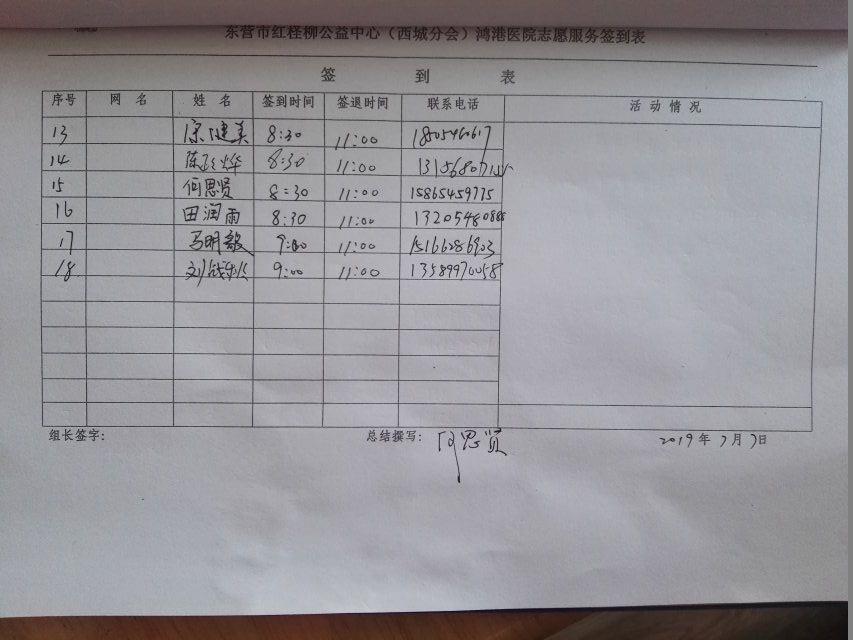 东营市红柽柳公益中心（西城分会）鸿港医院志愿服务签到表
签 到 表
序号 网 名 姓 名 签到时间 签退时间 联系电话 活 动 情 况
13 健美 8:30 11:00
14 陈 烨 8:30 11:00
15 何思贤 8:30 11:00 15865459775
16 田润雨 8:30 11:00
17 马明毅 9:00 11:00
18 刘 9:00 11:00 13589970058
组长签字: 总结撰写: 何思贤 2019年 7月7日